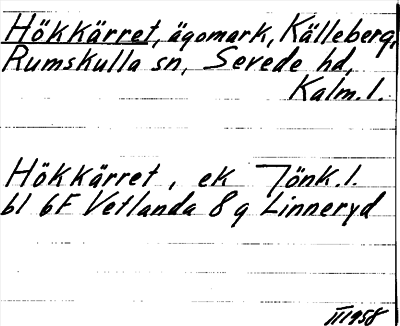 Hökkärret, ägomark, Källeberg,
Rumskulla sn, Sevede hd,
Kalm.l.
Hökkärret, ek Jönk.l.
bl 6F Vetlanda 8g Linneryd
III 1958